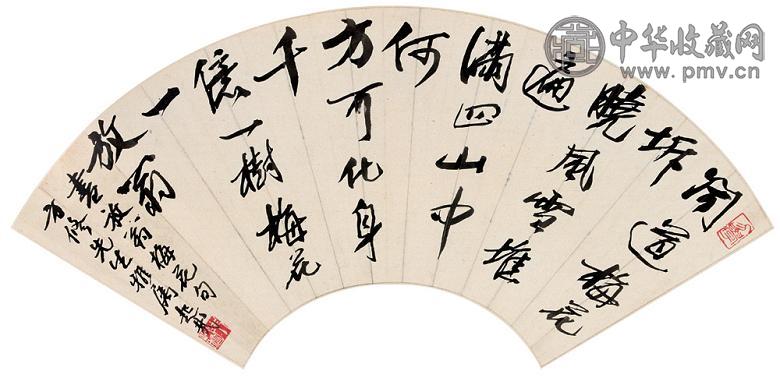 聞道梅花
坼
曉風雪堆
遍
滿四山中
何
方可化身
千
億一樹梅花
一
放翁
書放翁梅花句
修先生雅屬
中华收藏网
www.pmv.cn